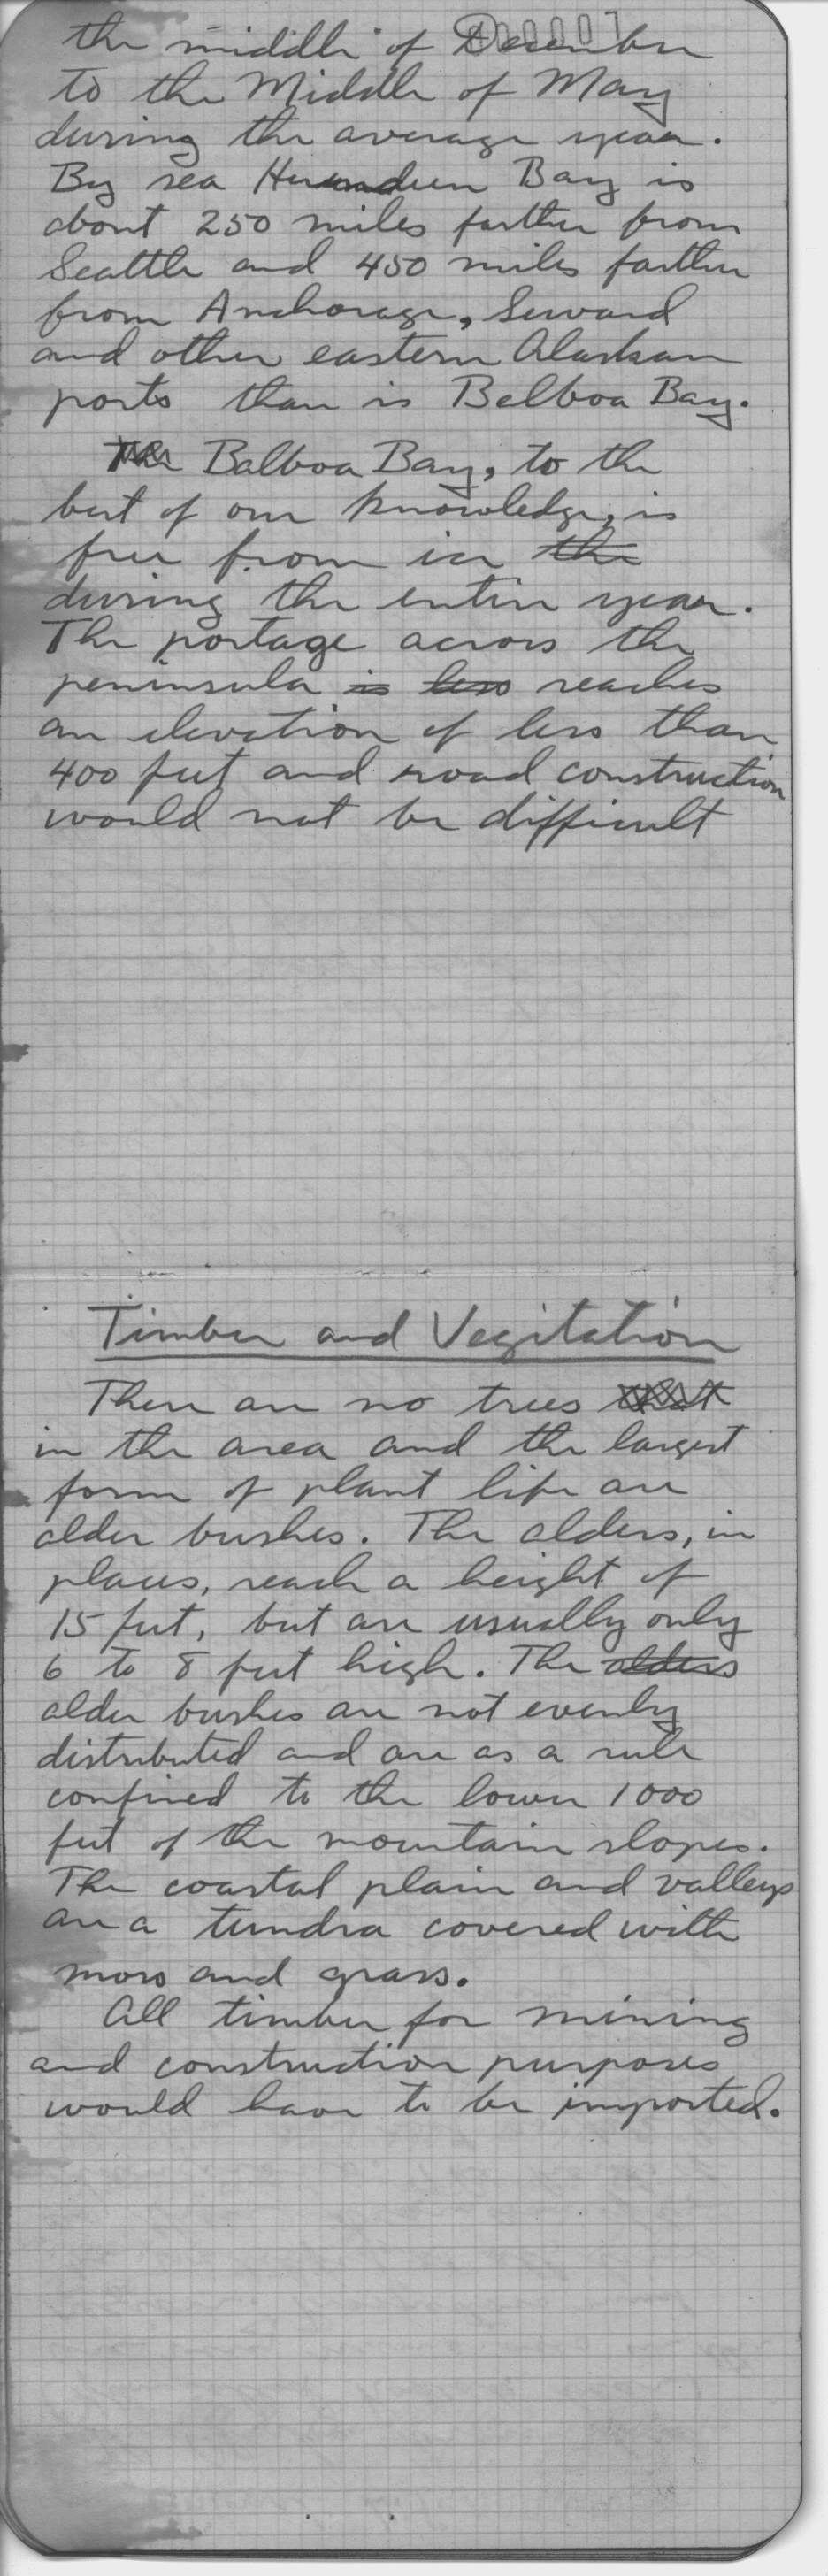 the middle of December
to the Middle of May
during the average year.
By sea Herendeen Bay is
about 250 miles farther from
Seattle and 450 miles farther
from Anchorage, Seward
and other eastern Alaskan
ports than is Belboa Bay.
The Balboa Bay, to the
best of our knowledge, is
free from ice the
during the entire year.
The portage across the
peninsula is less reaches
an elevation of less than
400 feet and road construction
would not be difficult
Timber and Vegitation
There are no trees that
in the area and the largest
form of plant life are
alder bushes. The alders, in
places, reach a height of
15 feet, but are usually only
6 to 8 feet high. The alders
alder bushes are not evenly
distributed and are as a rule
confined to the lower 1000
feet of the mountain slopes.
The coastal plain and valleys
are a tundra covered with
moss and grass.
All timber for mining
and construction purposes
would have to be imported.